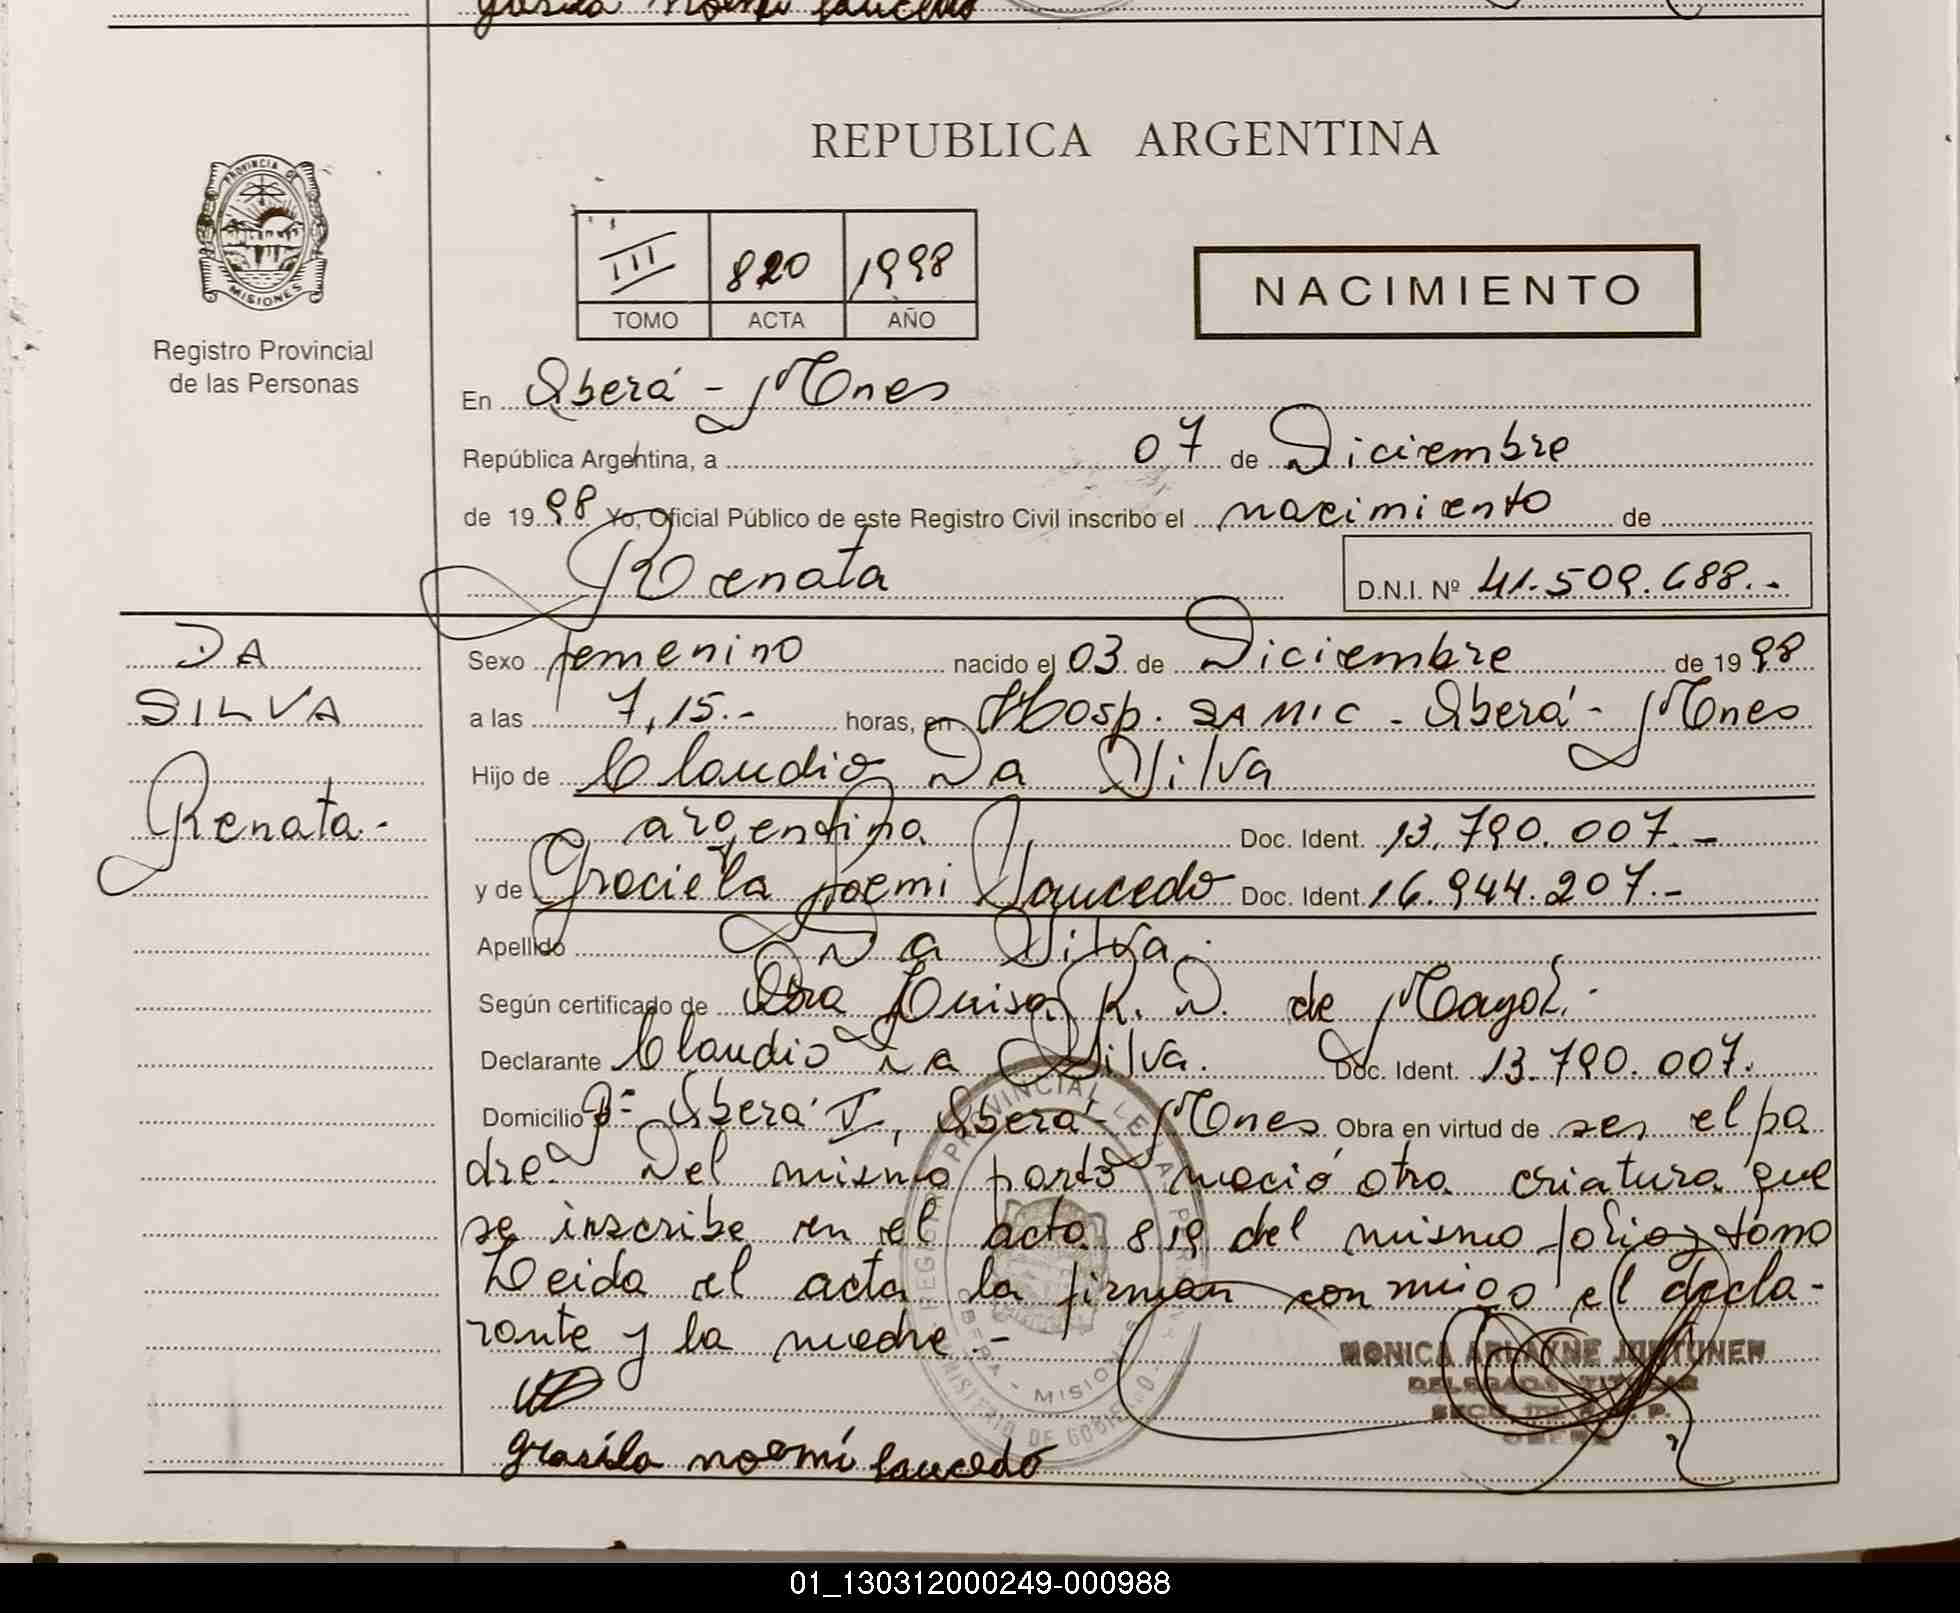 REPUBLICA ARGENTINA
PROVINCIA DE
MISIONES
Registro Provincial
de las Personas
III 820 1998
TOMO ACTA AÑO
NACIMIENTO
En Oberá - Mnes
República Argentina, a 07 de Diciembre
de 1998 Yo, Oficial Público de este Registro Civil inscribo el nacimiento de
Renata
D.N.I. Nº 41.509.688.-
DA
SILVA
Renata.-
Sexo femenino nacido el 03 de Diciembre de 1998
a las 7,15.- horas, en Hosp. SAMIC - Oberá - Mnes
Hijo de Claudio Da Silva
argentina Doc. Ident. 13.790.007.-
y de Graciela Noemi Saucedo Doc. Ident. 16.944.207.-
Apellido Da Silva.
Según certificado de Dra Luisa R. D. de Mayol.
Declarante Claudio Da Silva. Doc. Ident. 13.790.007.
Domicilio Oberá V, Oberá - Mnes Obra en virtud de ser el pa
dre. Del mismo parto nació otra criatura que
se inscribe en el acta 819 del mismo folio y tomo
Leida el acta la firman conmigo el decla-
rante y la madre.-
MONICA
DELEGADA TITULAR
grasila noemí saucedo
01_130312000249-000988